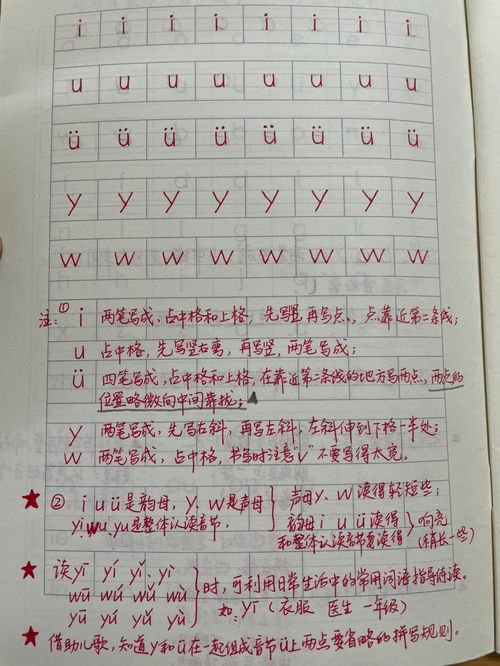 i i i i i i i i
u u u u u u u u
ü ü ü ü ü ü ü ü
y y y y y y y y
w w w w w w w w
注: ① i 两笔写成, 占中格和上格, 先写竖再写点, 点靠近第二条线;
u 占中格, 先写竖右弯, 再写竖, 两笔写成;
ü 四笔写成, 占中格和上格, 在靠近第二条线的地方写两点, 两点的
位置略微向中间靠拢;
y 两笔写成, 先写右斜, 再写左斜, 左斜伸到下格一半处;
w 两笔写成, 占中格, 书写时注意"v"不要写得太宽。
★ ② i u ü是韵母, y、w是声母 声母y、w读得轻短些;
yi、wu、yu是整体认读音节, 韵母 i u ü读得 响亮
和整体认读音节要读得 (稍长一些)
★ 读yī yí yǐ yì
wū wú wǔ wù 时, 可利用日常生活中的常用词语指导练读。
yū yú yǔ yù 如: yī (衣服 医生 一年级)
★ 借助儿歌, 知道y和ü在一起组成音节ü上两点要省略的拼写规则。